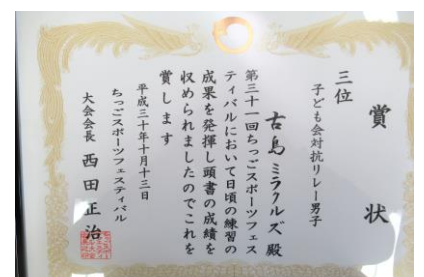 賞状
三位
子ども会対抗リレー男子
古島ミラクルズ殿
第三十一回ちっごスポーツフェス
ティバルにおいて日頃の練習の
成果を発揮し頭書の成績を
収められましたのでこれを
賞します
平成三十年十月十三日
ちっごスポーツフェスティバル
大会会長 西田正治